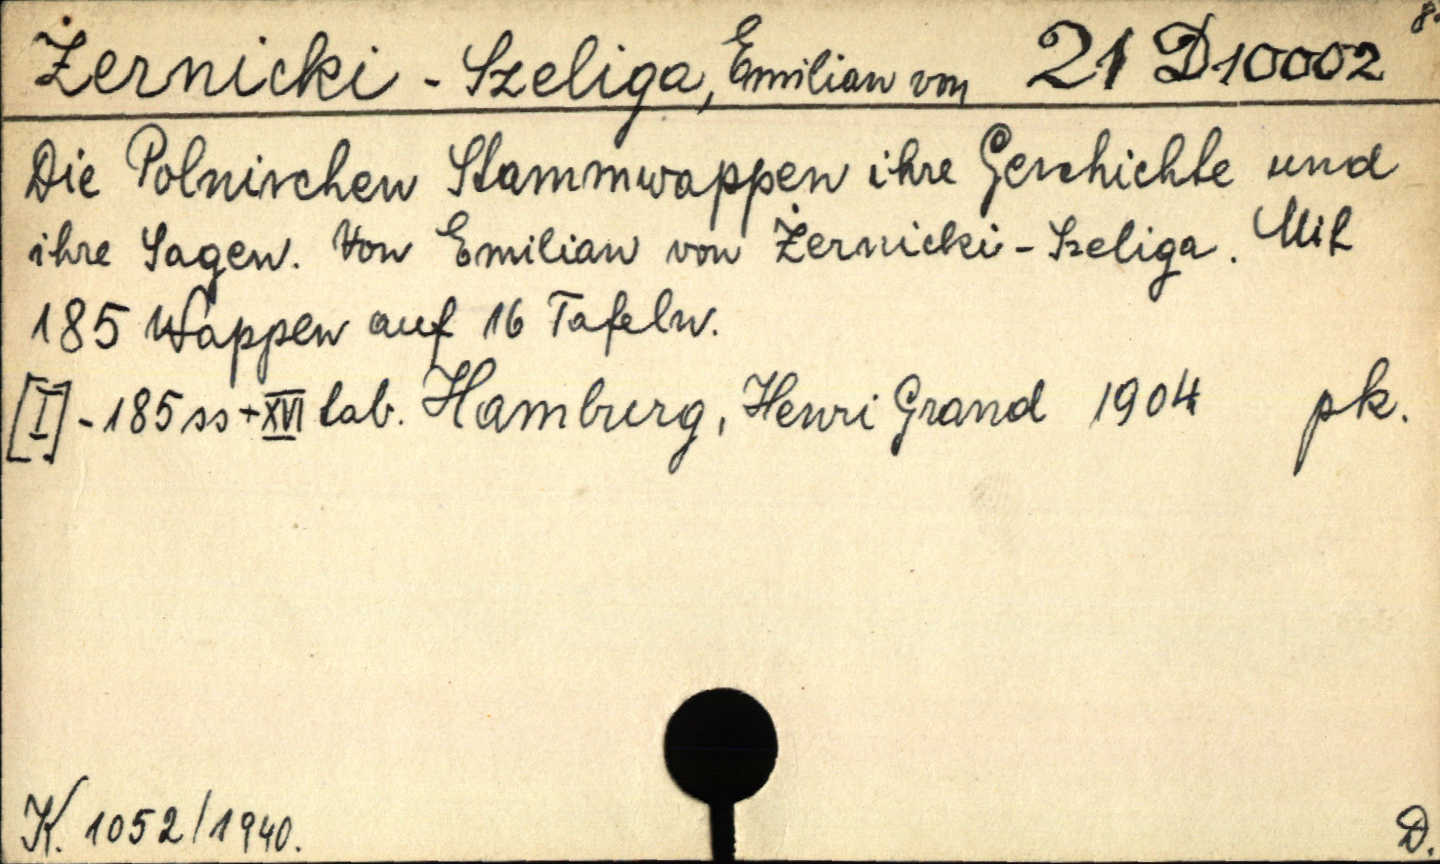 Żernicki - Szeliga, Emilian von 21 D 10002 8°
Die Polnischen Stammwappen ihre Geschichte und
ihre Sagen. Von Emilian von Żernicki - Szeliga. Mit
185 Wappen auf 16 Tafeln.
[I] - 185 ss + XVI tab. Hamburg, Henri Grand 1904 pk.
K. 1052/1940. D.